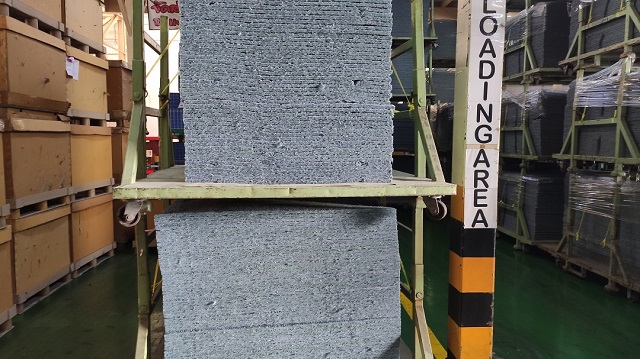 LOADING AREA